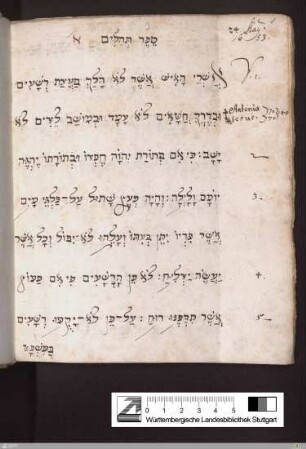 ספר תהלים א
אשרי האיש אשר לא הלך בעצת רשעים
ובדרך חטאים לא עמד ובמושב לצים לא
ישב: כי אם בתורת יהוה חפצו ובתורתו יהגה
יומם ולילה: והיה כעץ שתול על־פלגי מים
אשר פריו יתן בעתו ועלהו לא־יבול וכל אשר
יעשה יצליח: לא כן הרשעים כי אם כמוץ
אשר תדפנו רוח: על־כן לא־יקמו רשעים
במשפט
24
V. 1.
Antonia
3.
4.
5
0 1 2 3 4 5
Württembergische Landesbibliothek Stuttgart